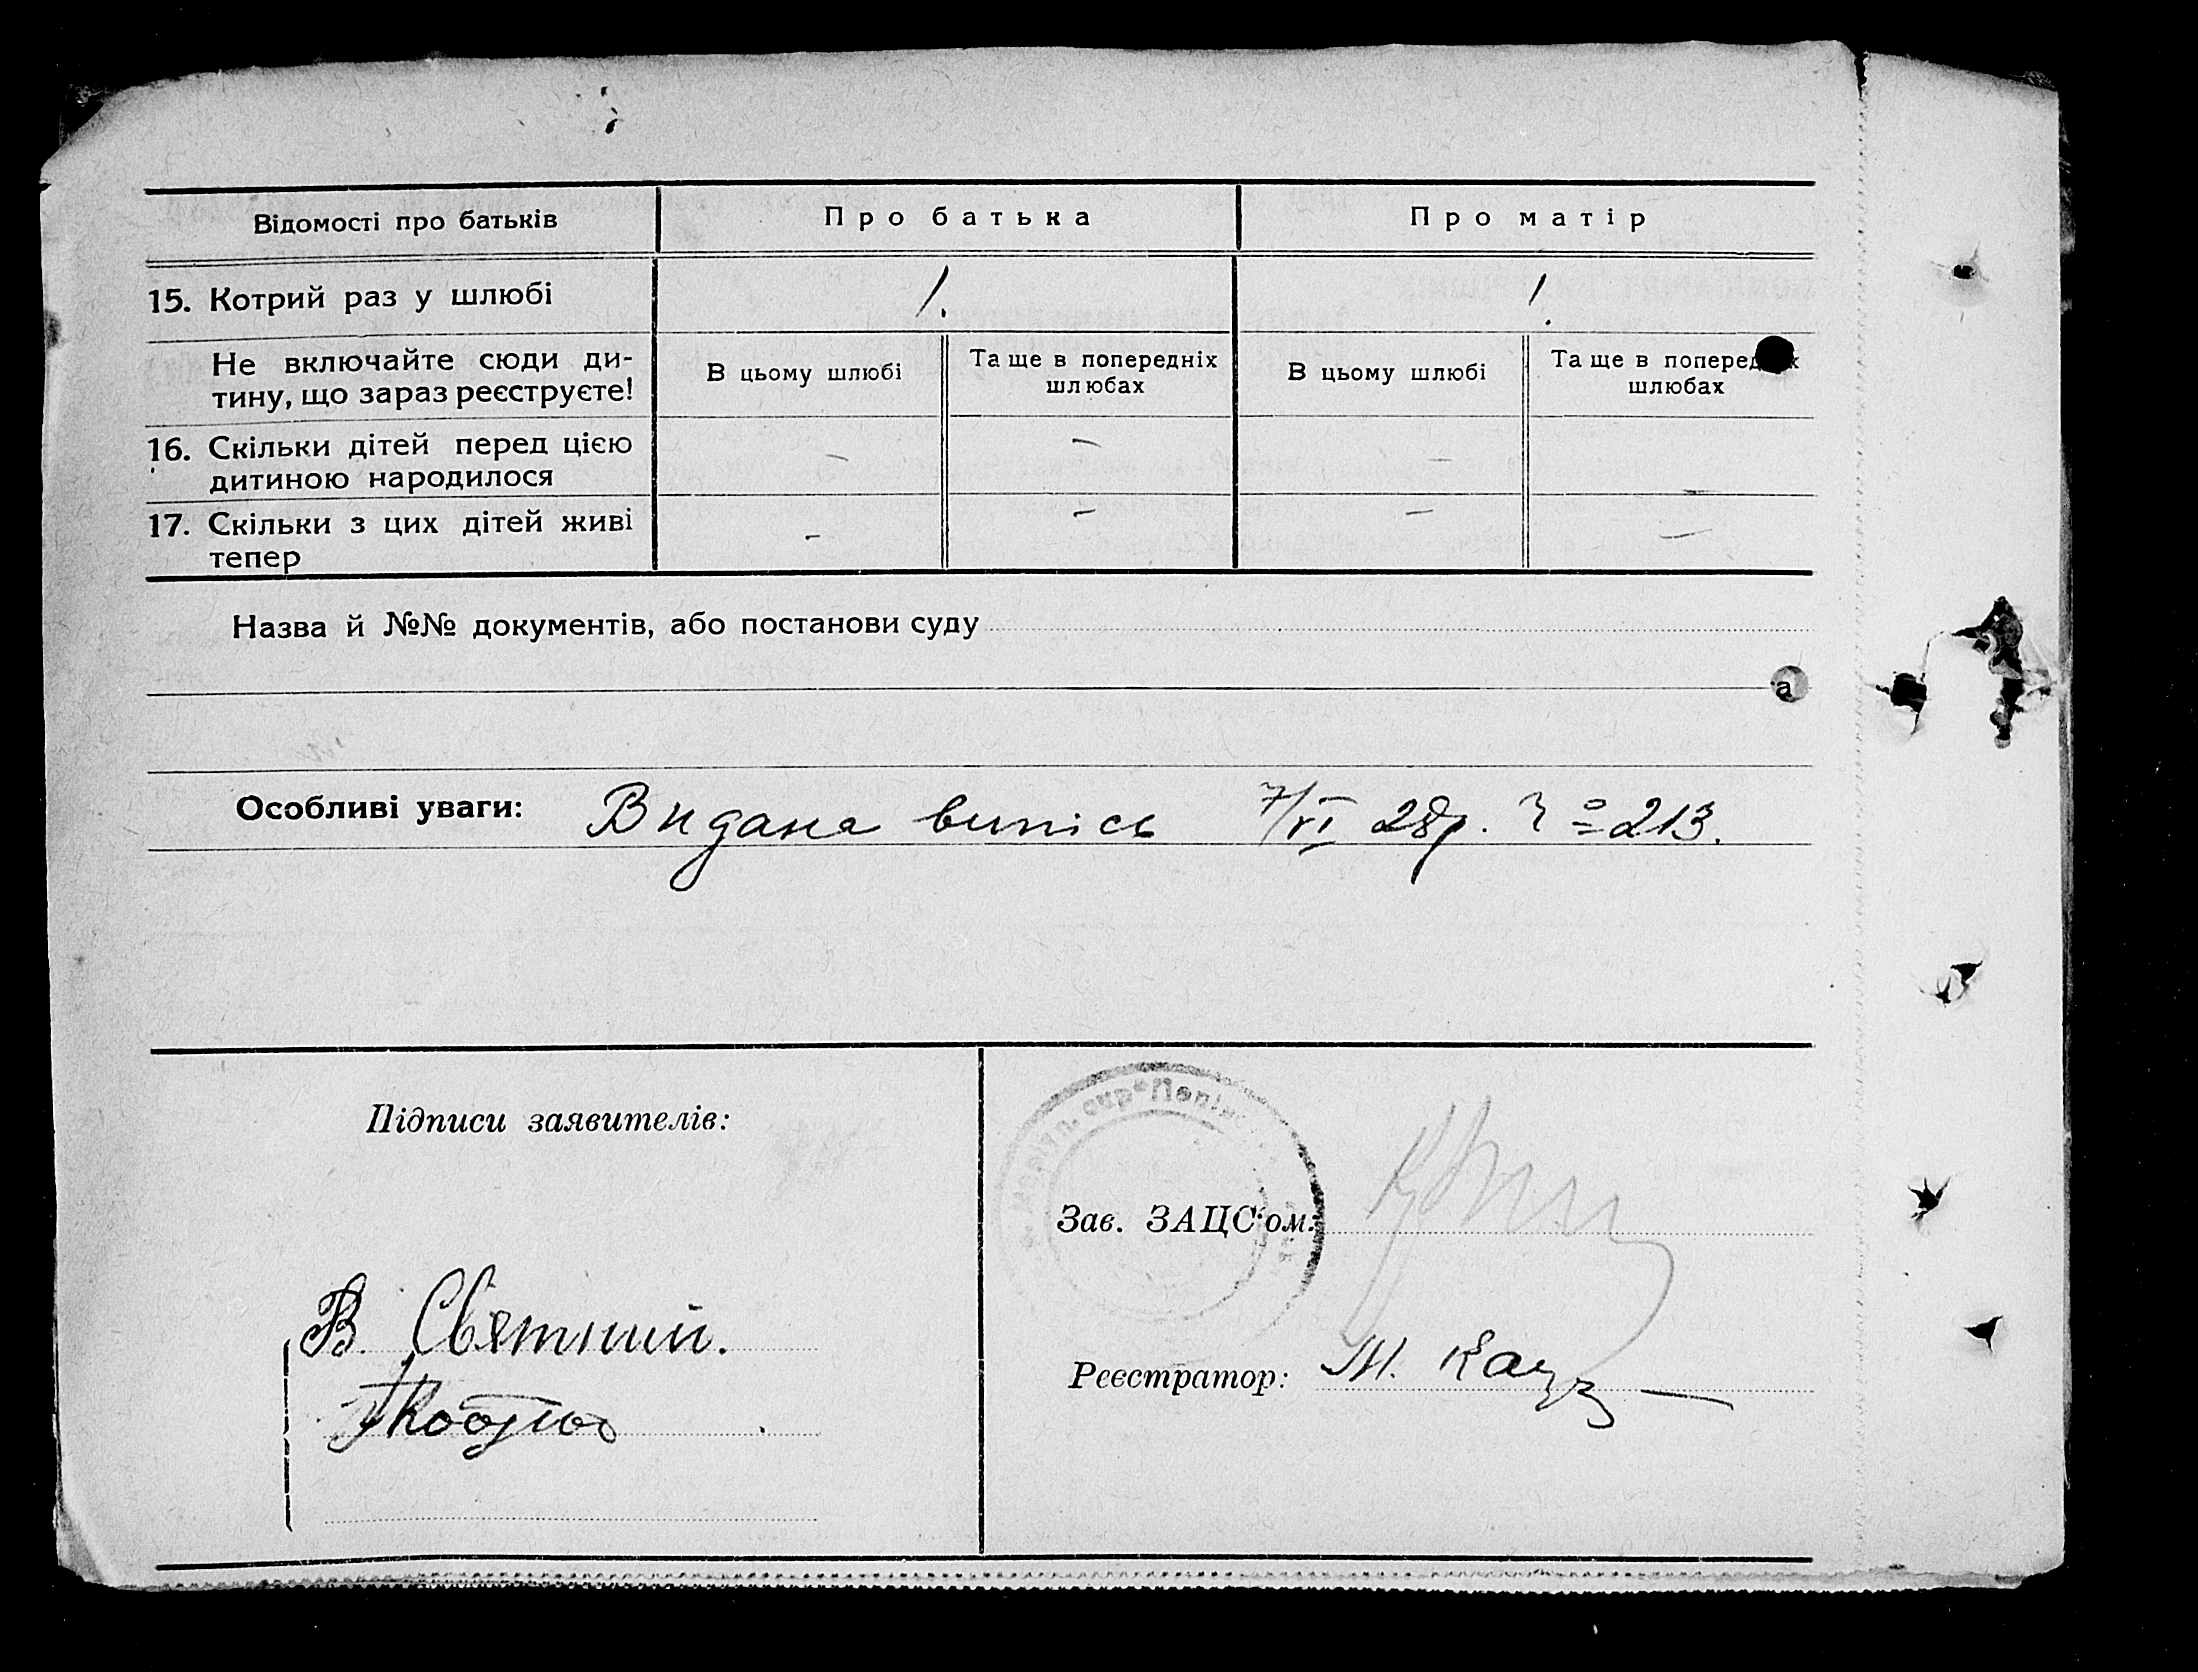 Відомості про батьків	Про батька	Про матір
15. Котрий раз у шлюбі	1.	1.
Не включайте сюди ди-
тину, що зараз реєструєте!
В цьому шлюбі	Та ще в попередніх
шлюбах
В цьому шлюбі	Та ще в
шлюбах
16. Скільки дітей перед цією	–	–	–	–
дитиною народилося
17. Скільки з цих дітей живі	–	–	–	–
тепер
Назва й №№ документів, або постанови суду
а
Особливі уваги: Видана випісь 7/VI 28р. № 213.
Підписи заявителів:
Зав. ЗАЦС'ом:
В. Святний.
Реєстратор: М.